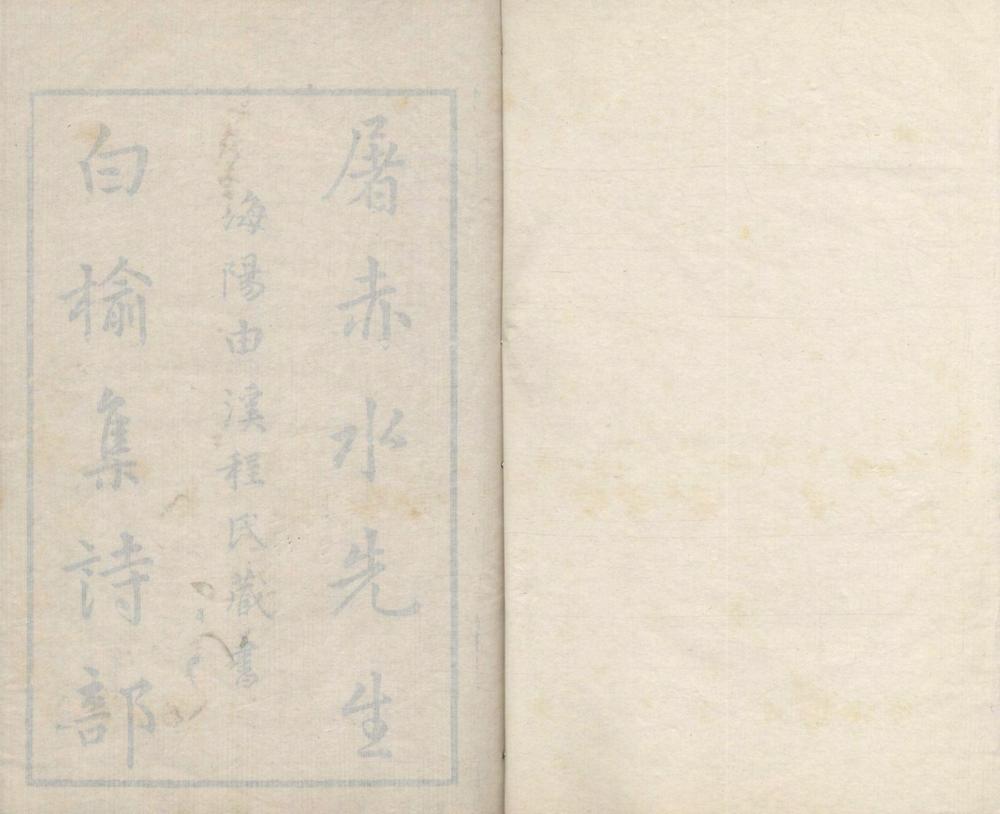 屠赤水先生
海陽由溪程氏藏書
白榆集詩部